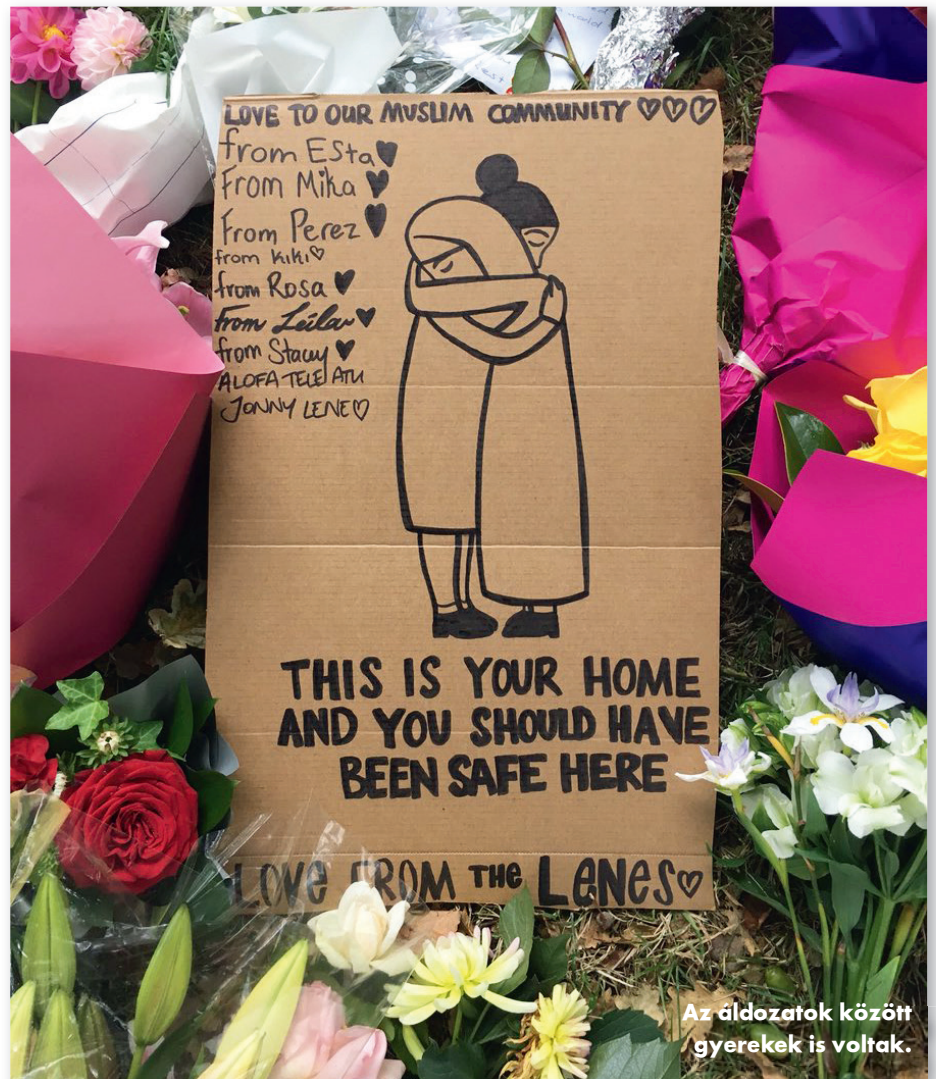 LOVE TO OUR MUSLIM COMMUNITY ♡♡♡
from Esta♥
From Mika ♥
From Perez ♥
from kiki♡
from Rosa ♥
From Leila ♥
from Stacy ♥
ALOFA TELE ATU
JONNY LENE♡
THIS IS YOUR HOME
AND YOU SHOULD HAVE
BEEN SAFE HERE
LOVE FROM THE LENES♡
Az áldozatok között
gyerekek is voltak.